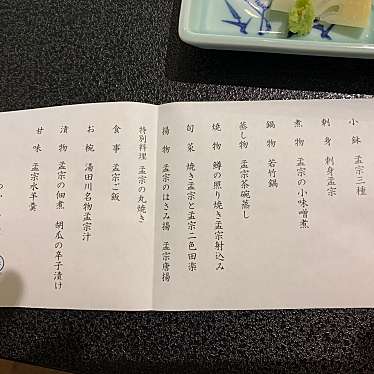 小鉢 孟宗三種
刺身 刺身孟宗
煮物 孟宗の小味噌煮
鍋物 若竹鍋
蒸し物 孟宗茶碗蒸し
焼物 鱒の照り焼き孟宗射込み
旬菜 焼き孟宗と孟宗二色田楽
揚物 孟宗のはさみ揚 孟宗唐揚
特別料理 孟宗の丸焼き
食事 孟宗ご飯
お椀 湯田川名物孟宗汁
漬物 孟宗の佃煮 胡瓜の辛子漬け
甘味 孟宗水羊羹